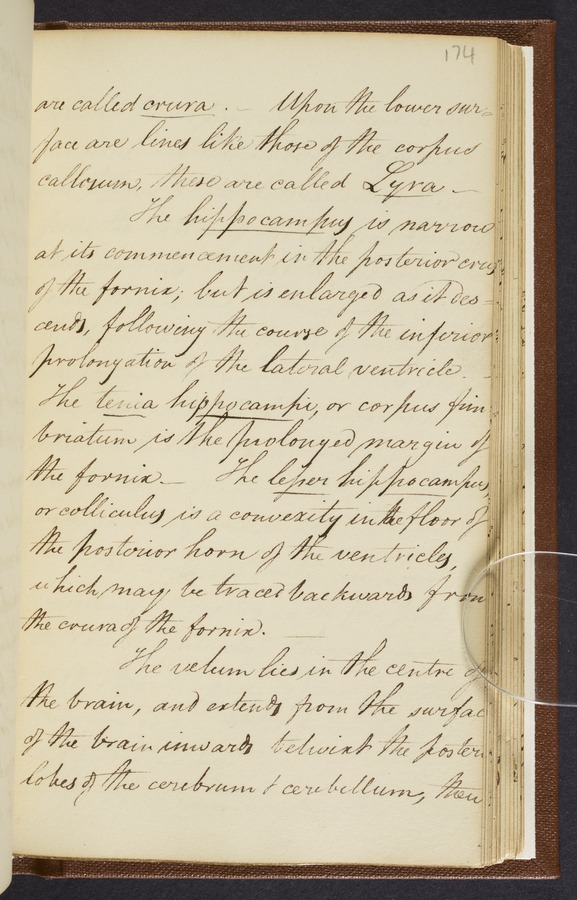 174
are called crura. – Upon the lower sur=
face are lines like those of the corpus
callosum, these are called Lyra –
The hippocampus is narrow
at its commencement in the posterior crus
of the fornix; but is enlarged as it des=
cends, following the course of the inferior
prolongation of the lateral ventricle.
The tenia hippocampi, or corpus fim
briatum is the prolonged margin of
the fornix. – The lesser hippocampus,
or colliculus is a convexity in the floor of
the posterior horn of the ventricles,
which may be traced backwards from
the crura of the fornix. –
The velum lies in the centre of
the brain, and extends from the surfac
of the brain inwards betwixt the posteri
lobes of the cerebrum & cerebellum, then